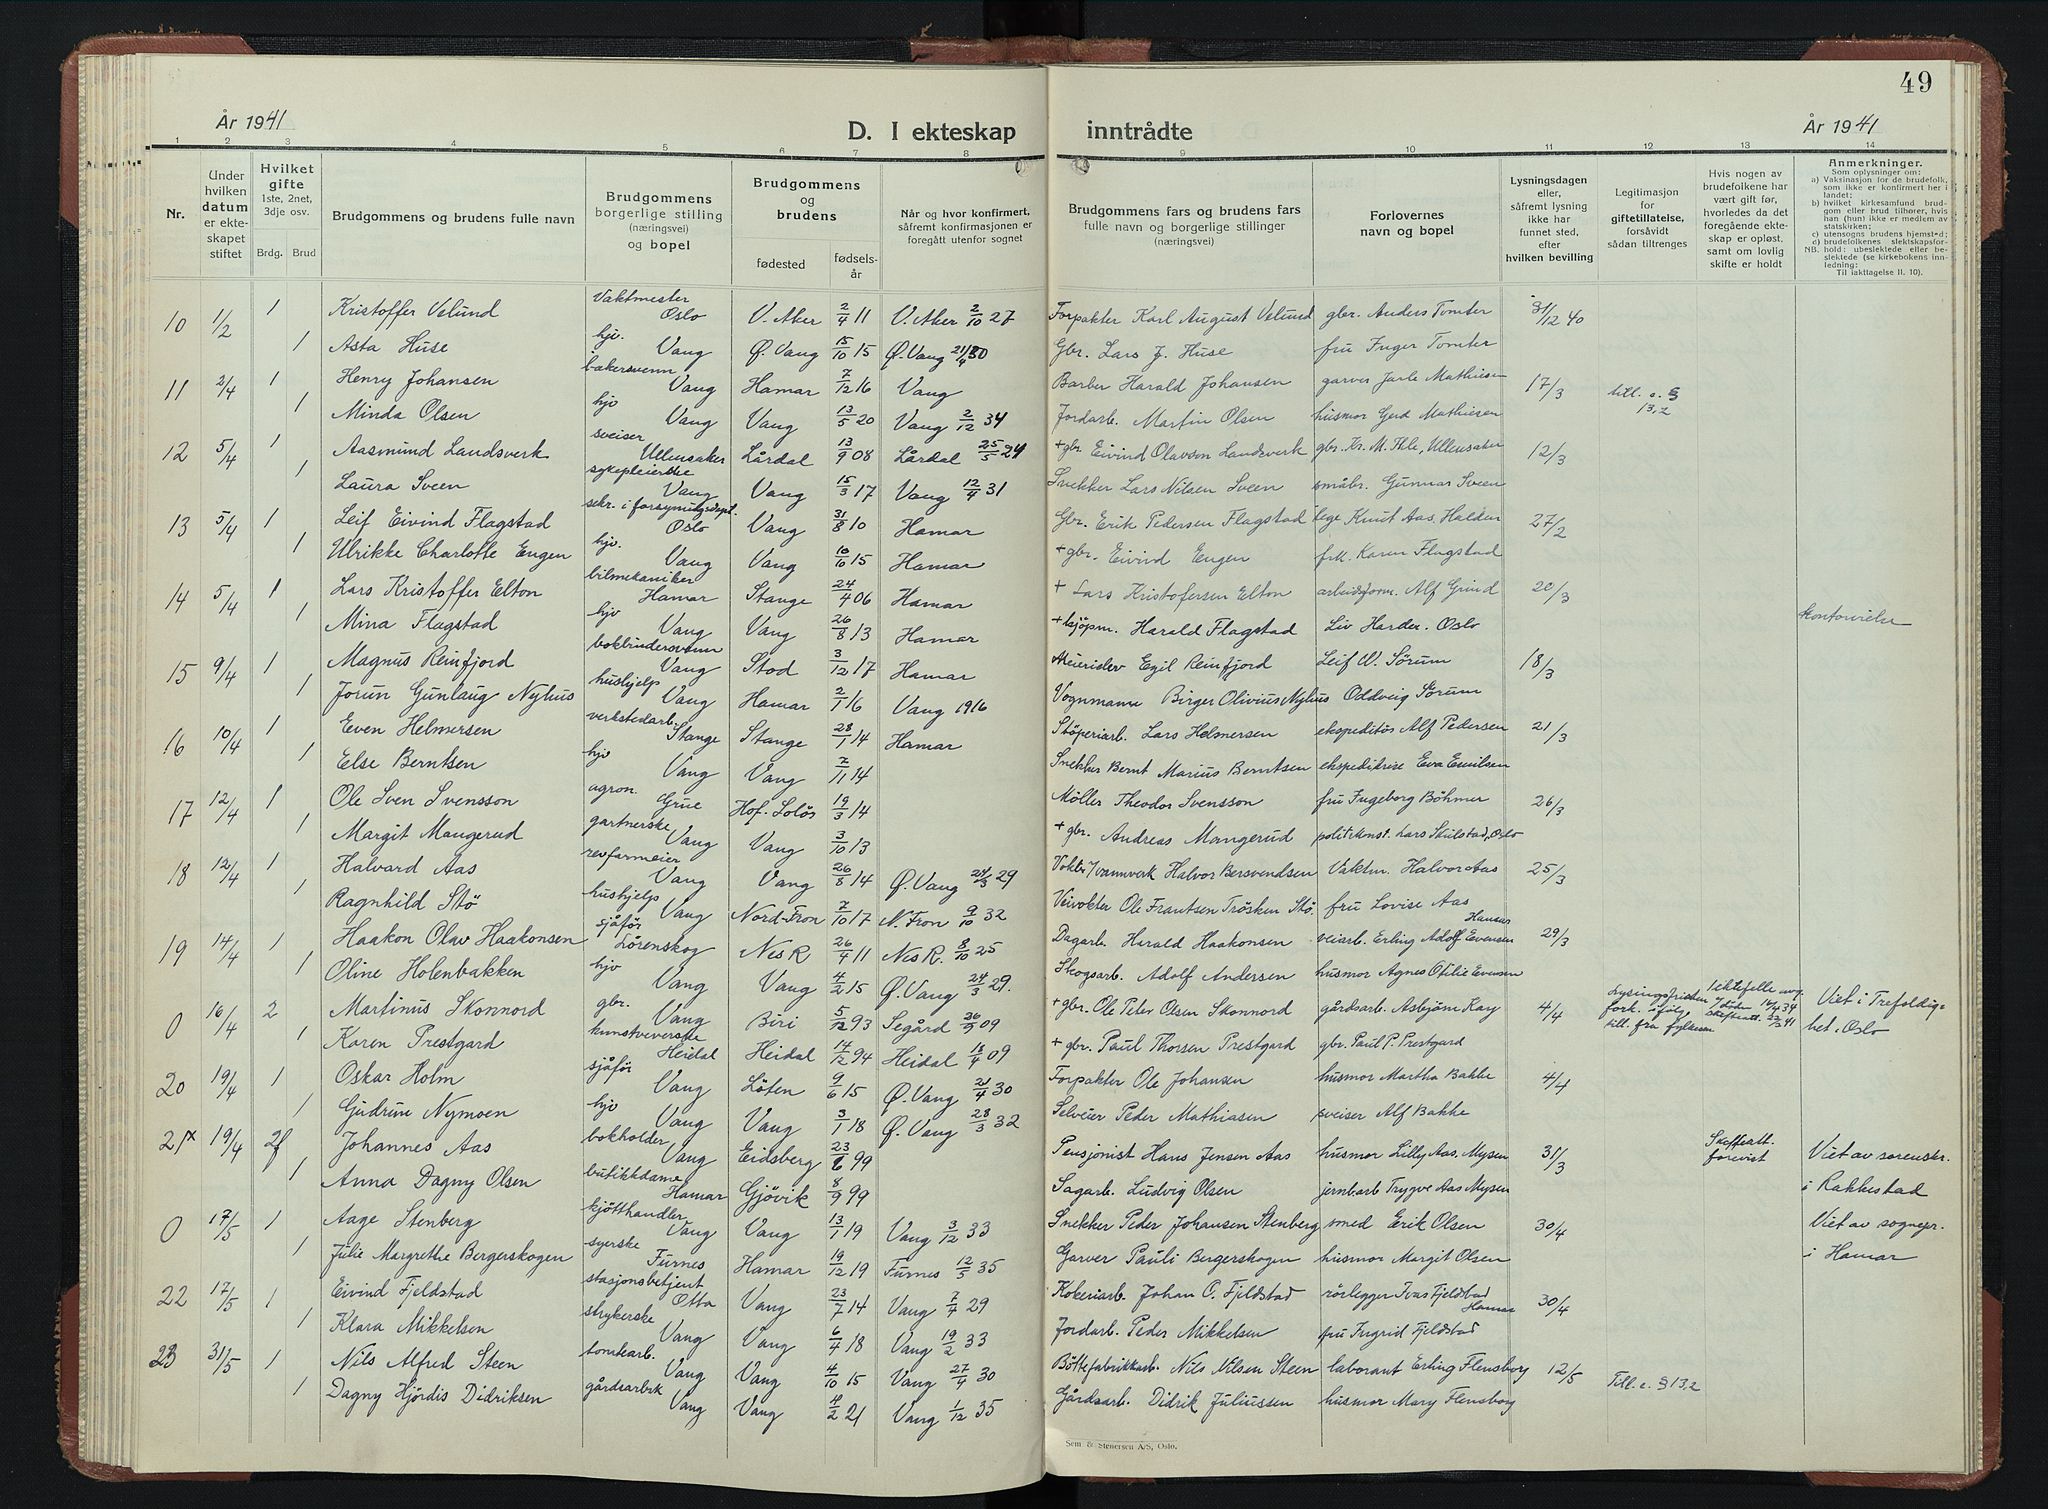 49
År 1941
D. I ekteskap inntrådte
År 1941
1 2 3 4 5 6 7 8 9 10 11 12 13 14
Nr.
Under hvilken datum er ekteskapet stiftet
Hvilket gifte 1ste, 2net, 3dje osv.
Brdg. Brud
Brudgommens og brudens fulle navn
Brudgommens borgerlige stilling (næringsvei) og bopel
Brudgommens og brudens
fødested
fødselsår
Når og hvor konfirmert, såfremt konfirmasjonen er foregått utenfor sognet
Brudgommens fars og brudens fars fulle navn og borgerlige stillinger (næringsvei)
Forlovernes navn og bopel
Lysningsdagen eller, såfremt lysning ikke har funnet sted, efter hvilken bevilling
Legitimasjon for giftetillatelse, forsåvidt sådan tiltrenges
Hvis nogen av brudefolkene har vært gift før, hvorledes da det foregående ekteskap er opløst, samt om lovlig skifte er holdt
Anmerkninger.
Som oplysninger om:
a) Vaksinasjon for de brudefolk, som ikke er konfirmert her i landet;
b) hvilket kirkesamfund brudgom eller brud tilhører, hvis han (hun) ikke er medlem av statskirken;
c) utensogns brudens hjemsted;
d) brudefolkenes slektskapsforhold: ubeslektede eller beslektede (se kirkebokens innledning:
NB.
Til iakttagelse II. 10).
10 1/2 1 Kristoffer Velund Vaktmester Oslo V. Aker 2/4 11 V. Aker 2/10 27 Forpakter Karl August Velund gbr. Anders Tomter 31/12 40
1 Asta Huse hjv. Vang Ø. Vang 15/10 15 Ø. Vang 21/4 30 Gbr. Lars J. Huse fru Inger Tomter
11 2/4 1 Henry Johansen bakersvenn Vang Hamar 7/12 16 Vang Barber Harald Johansen garver Jarle Mathiesen 17/3 till. e. § 13,2
1 Minda Olsen hjv Vang Vang 13/5 20 Vang 2/12 34 Jordarb. Martin Olsen husmor Gerd Mathiesen
12 5/4 1 Aasmund Landsverk sveiser Ullensaker Lårdal 13/9 08 Lårdal 25/5 24 + gbr. Eivind Olavson Landsverk gbr. Kr. M. Ihle, Ullensaker 12/3
1 Laura Sveen sykepleierske Vang Vang 15/3 17 Vang 12/4 31 Snekker Lars Nilsen Sveen småbr. Gunnar Sveen
13 5/4 1 Leif Eivind Flagstad sekr. i forsyningsdept. Oslo Vang 31/8 10 Hamar Gbr. Erik Pedersen Flagstad lege Knut Aas, Halden 27/2
1 Ulrikke Charlotte Engen hjv. Vang Vang 10/10 15 Hamar + gbr. Eivind Engen frk. Karen Flagstad
14 5/4 1 Lars Kristoffer Elton bilmekaniker Hamar Stange 24/4 06 Hamar + Lars Kristofersen Elton arbeidsform. Alf Grind 20/3
1 Mina Flagstad hjv Vang Vang 26/8 13 Hamar + kjöpm. Harald Flagstad Liv Harder. Oslo kontorvielse
15 9/4 1 Magnus Reinfjord bokbindersvenn Vang Stod 3/12 17 Hamar Meierielev Egil Reinfjord Leif W. Sörum 18/3
1 Jorun Gunlaug Nyhus hushjelp Vang Hamar 2/1 16 Vang 1916 Vognmann Birger Olivius Nyhus Oddveig Sörum
16 10/4 1 Even Helmersen verkstedarb. Stange Stange 28/1 14 Hamar Stöperiarb. Lars Helmersen ekspeditös Alf Pedersen 21/3
1 Else Berntsen hjv Vang Vang 7/11 14 Snekker Bernt Marius Berntsen ekspeditrise Eva Emilsen
17 12/4 1 Ole Sven Svensson agron. Grue Hof. Solös 19/3 14 Möller Theodor Svensson fru Ingeborg Böhmer 26/3
1 Margit Mangerud gartnerske Vang Vang 3/10 13 + gbr. Andreas Mangerud politikonst. Lars Skulstad, Oslo
18 12/4 1 Halvard Aas revfarmeier Vang Vang 26/8 14 Ø. Vang 24/3 29 Vokter v/vannverk Halvor Bersvendsen Vaktm. Halvor Aas 25/3
1 Ragnhild Stö hushjelp Vang Nord-Fron 7/10 17 N. Fron 9/10 32 Veivokter Ole Frantsen Tröskén Stö. fru Lovise Aas Hamar
19 14/4 1 Haakon Olav Haakonsen sjåför Lörenskog Nes R 26/4 11 Nes R. 8/10 25 Dagarb. Harald Haakonsen veiarb. Erling Adolf Evensen 29/3
1 Oline Holenbakken hjv Vang Vang 4/2 15 Ø. Vang 24/3 29. Skogsarb. Adolf Andersen husmor Agnes Otilie Evensen
0 16/4 2 Martinus Skonnord gbr. Vang Biri 5/12 93 Segård 26/9 09 + gbr. Ole Peter Olsen Skonnord gårdsarb. Asbjörn Kay 4/4 Lysingsfristen fork. ifölge till. fra fylkesm 1 ektefelle avg. v/död 16/4 34 skifteatt. 22/3 41 Viet i Trefoldighet. Oslo
Karen Prestgard kunstveverske Heidal Heidal 14/12 94 Heidal 18/4 09 + gbr. Paul Thorsen Prestgard gbr. Paul P. Prestgard
20 19/4 1 Oskar Holm sjåför Vang Löten 9/6 15 Ø. Vang 21/4 30 Forpakter Ole Johansen husmor Martha Bakke 4/4
1 Gudrun Nymoen hjv Vang Vang 3/1 18 Ø. Vang 28/3 32 Selveier Peder Mathiasen sveiser Alf Bakke
21x 19/4 2f Johannes Aas bokholder Vang Eidsberg 23/6 99 Pensjonist Hans Jensen Aas husmor Lilly Aas, Mysen 31/3 Skifteatt. forevist Viet av sorenskr. i Rakkestad
1 Anna Dagny Olsen butikkdame Hamar Gjövik 8/9 99 Sagarb. Ludvig Olsen jernbarb Trygve Aas Mysen
0 17/5 1 Aage Stenberg kjötthandler Vang Vang 13/1 19 Vang 3/12 33 Snekker Peder Johansen Stenberg smed Erik Olsen 30/4 Viet av sognepr. i Hamar
1 Julie Margrethe Bergerskogen syerske Furnes Hamar 19/12 19 Furnes 12/5 35 Garver Pauli Bergerskogen husmor Margit Olsen
22 17/5 1 Eivind Fjeldstad stasjonsbetjent Otta Vang 23/7 14 Vang 7/4 29 Kokeriarb. Johan O. Fjeldstad rörlegger Ivar Fjeldstad Hamar 30/4
1 Klara Mikkelsen strykerske Vang Vang 6/4 18 Vang 19/2 33 Jordarb. Peder Mikkelsen fru Ingrid Fjeldstad
23 31/5 1 Nils Alfred Steen tomtearb. Vang Vang 4/10 15 Vang 27/4 30 Böttefabrikkarb. Nils Nilsen Steen laborant Erling Flensborg 12/5 Till. e. § 13,2
1 Dagny Hjördis Didriksen gårdsarbk Vang Vang 4/2 21 Vang 1/12 35 Gårdsarb. Didrik Juliussen husmor Mary Flensborg
Sem & Stenersen A/S, Oslo.